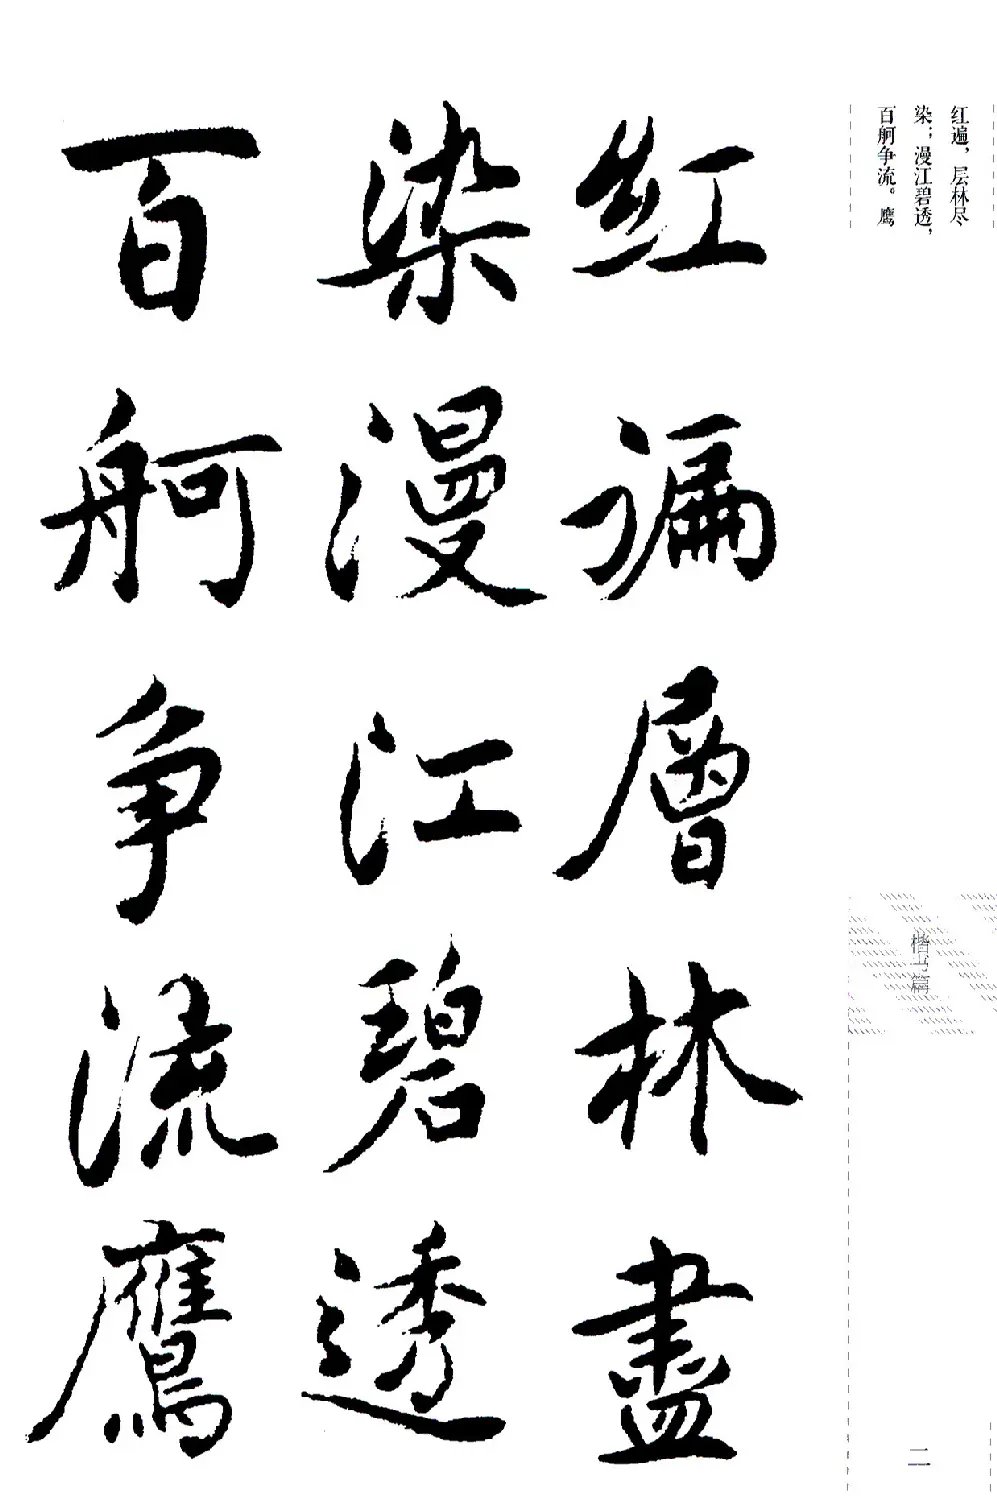 红遍，层林尽
染；漫江碧透，
百舸争流。鹰
红遍層林盡
染漫江碧透
百舸争流鷹
楷书篇
二